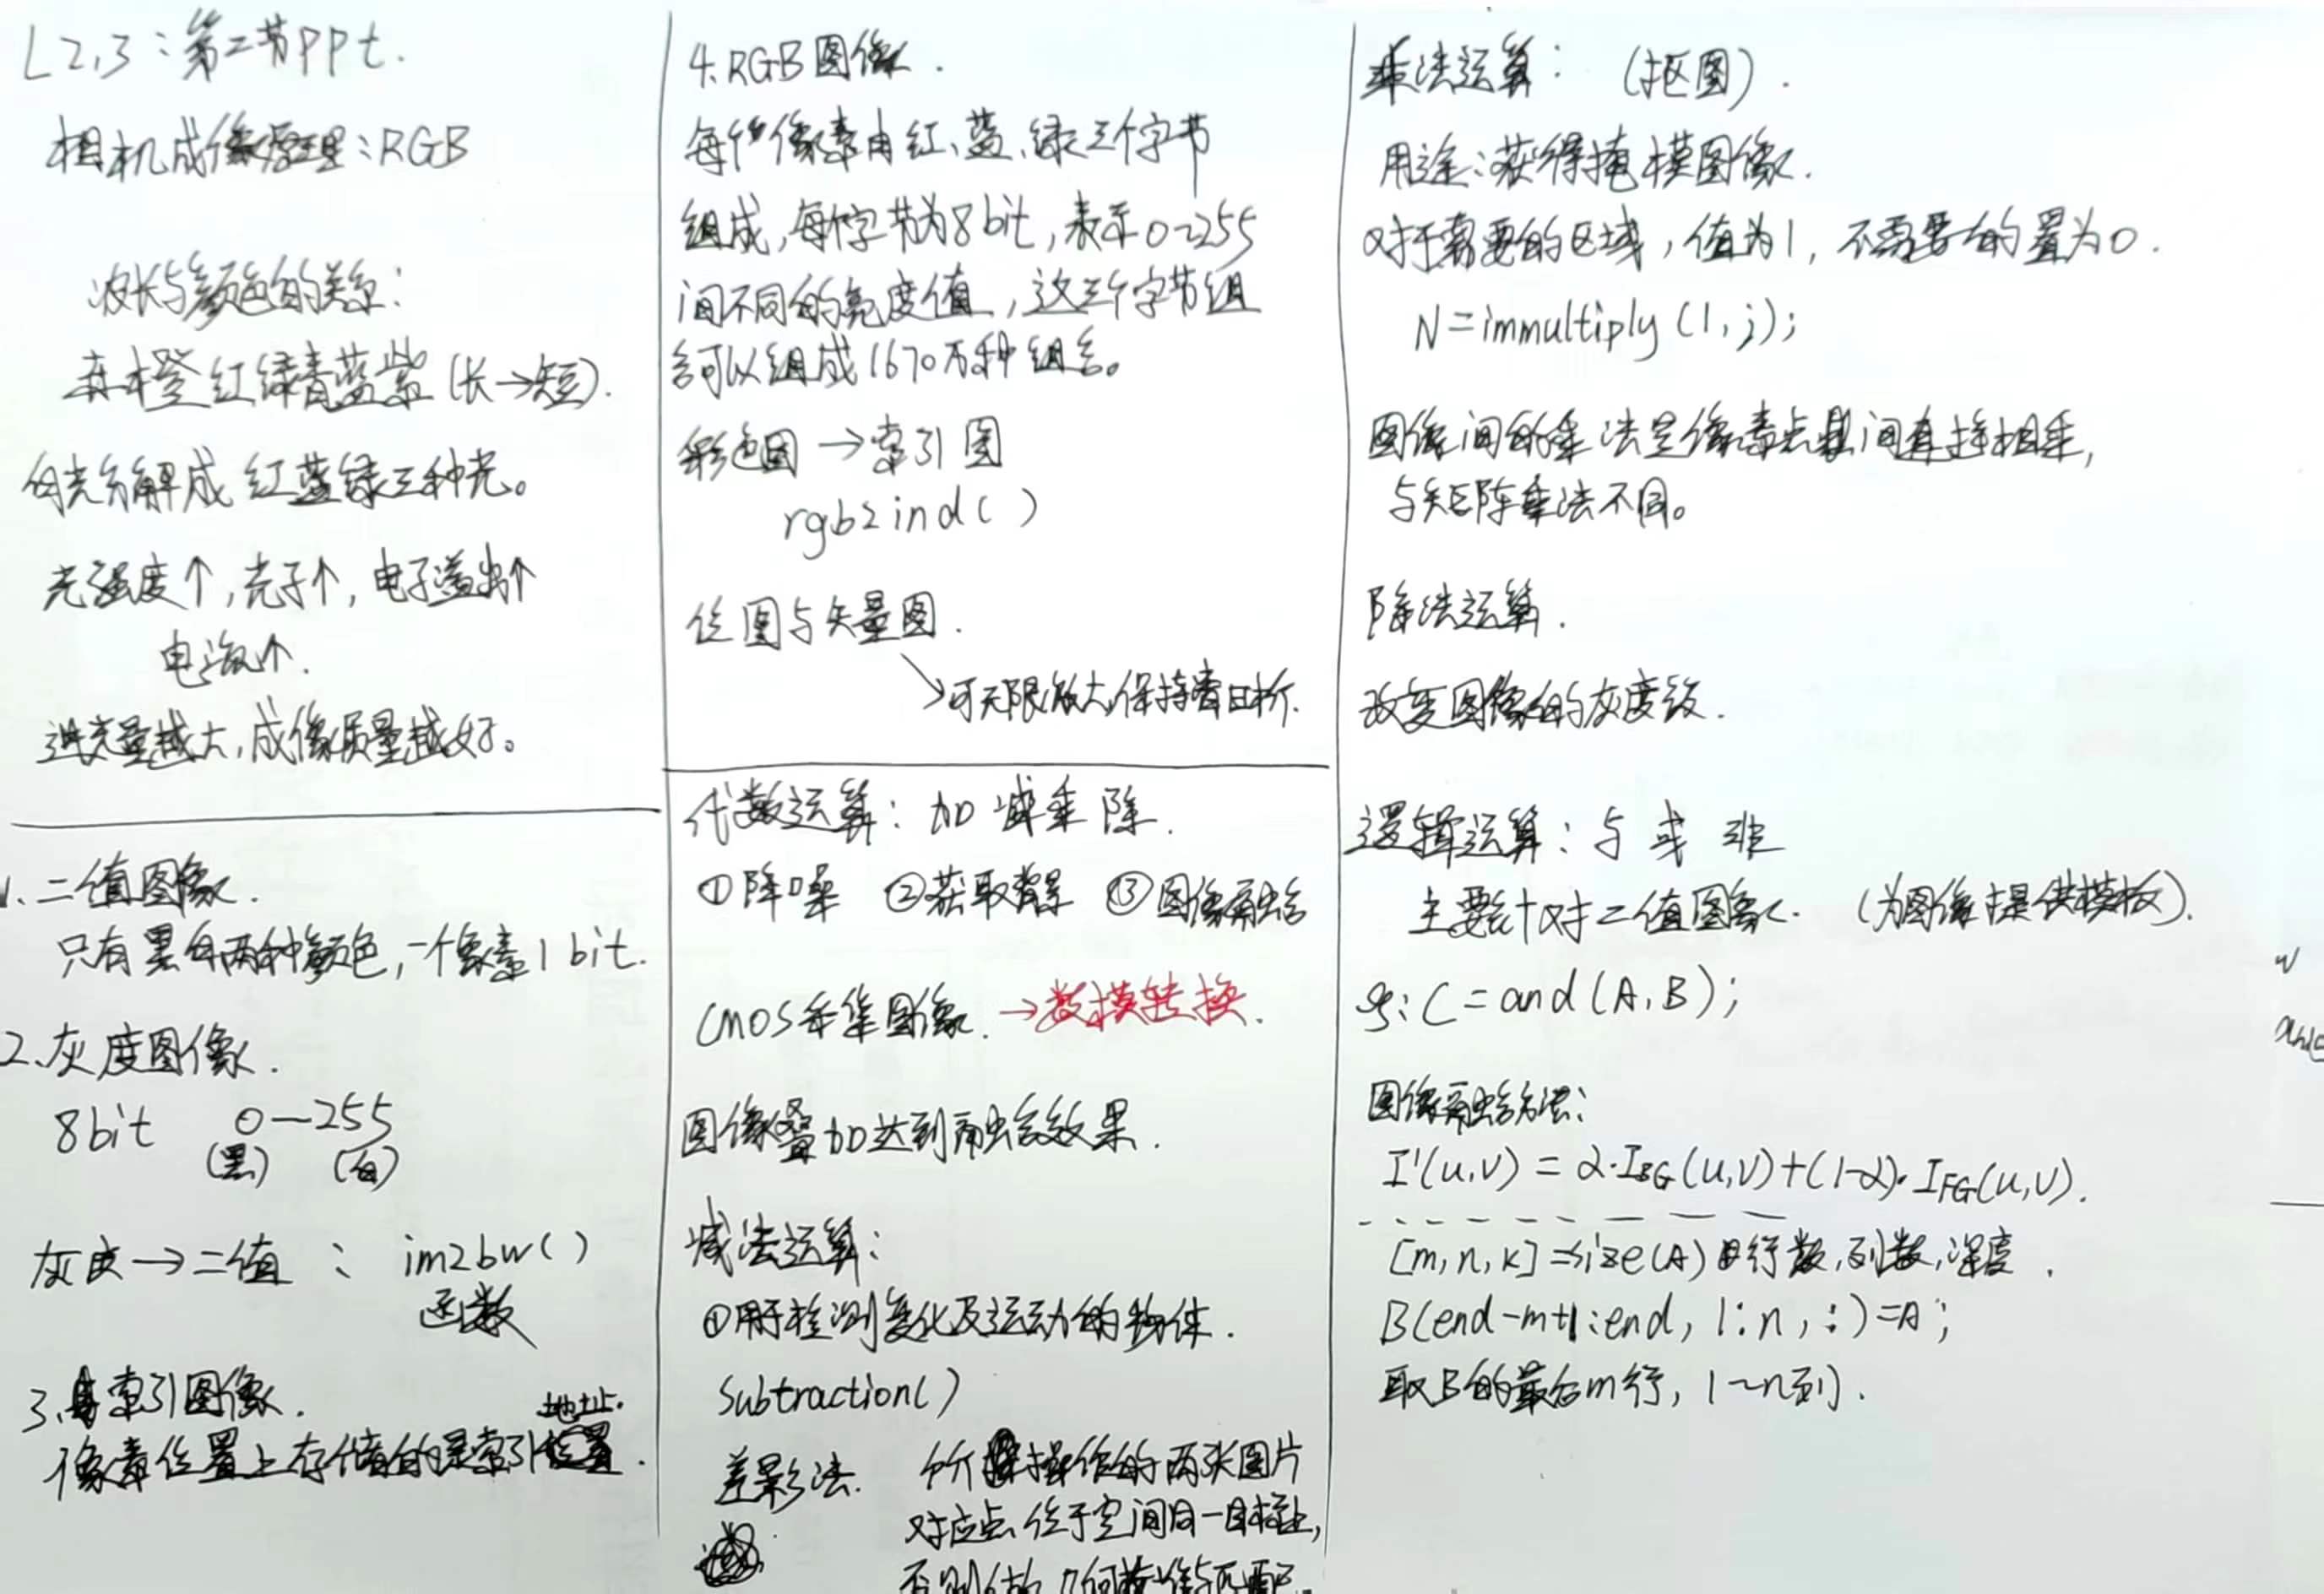 L2,3:第二节ppt.
相机成像原理:RGB
波长与颜色的关系:
赤橙红绿青蓝紫(长→短).
白光分解成红蓝绿三种光。
光强度↑,光子↑,电子溢出↑
电流↑.
进光量越大,成像质量越好。
1.二值图像.
只有黑白两种颜色,一个像素1bit.
2.灰度图像.
8bit 0—255
(黑) (白)
灰度→二值: im2bw()
函数
3.索引图像.
地址.
像素位置上存储的是索引
4.RGB图像.
每个像素由红、蓝、绿三个字节
组成,每个字节为8bit,表示0~255
间不同的亮度值,这三个字节组
合可以组成1670万种组合。
彩色图→索引图
rgb2ind()
位图与矢量图.
↘可无限放大,保持清晰.
代数运算: 加 减 乘 除.
①降噪 ②获取背景 ③图像融合
CMOS采集图像.→数模转换.
图像叠加达到融合效果.
减法运算:
①用于检测变化及运动的物体.
Subtraction()
差影法. 所操作的两张图片
对应点位于空间同一目标上,
否则做几何校准与匹配.
乘法运算: (抠图).
用途:获得掩模图像.
对于需要的区域,值为1,不需要的置为0.
N=immultiply(1,j);
图像间的乘法是像素点间直接相乘,
与矩阵乘法不同。
除法运算.
改变图像的灰度级.
逻辑运算:与 或 非
主要针对二值图像. (为图像提供模板).
eg:C=and(A,B);
图像融合方法:
I'(u,v)=α·I_BG(u,v)+(1-α)·I_FG(u,v).
[m,n,k]=size(A) 行数,列数,深度.
B(end-m+1:end,1:n,:)=A;
取B的最后m行,1~n列.